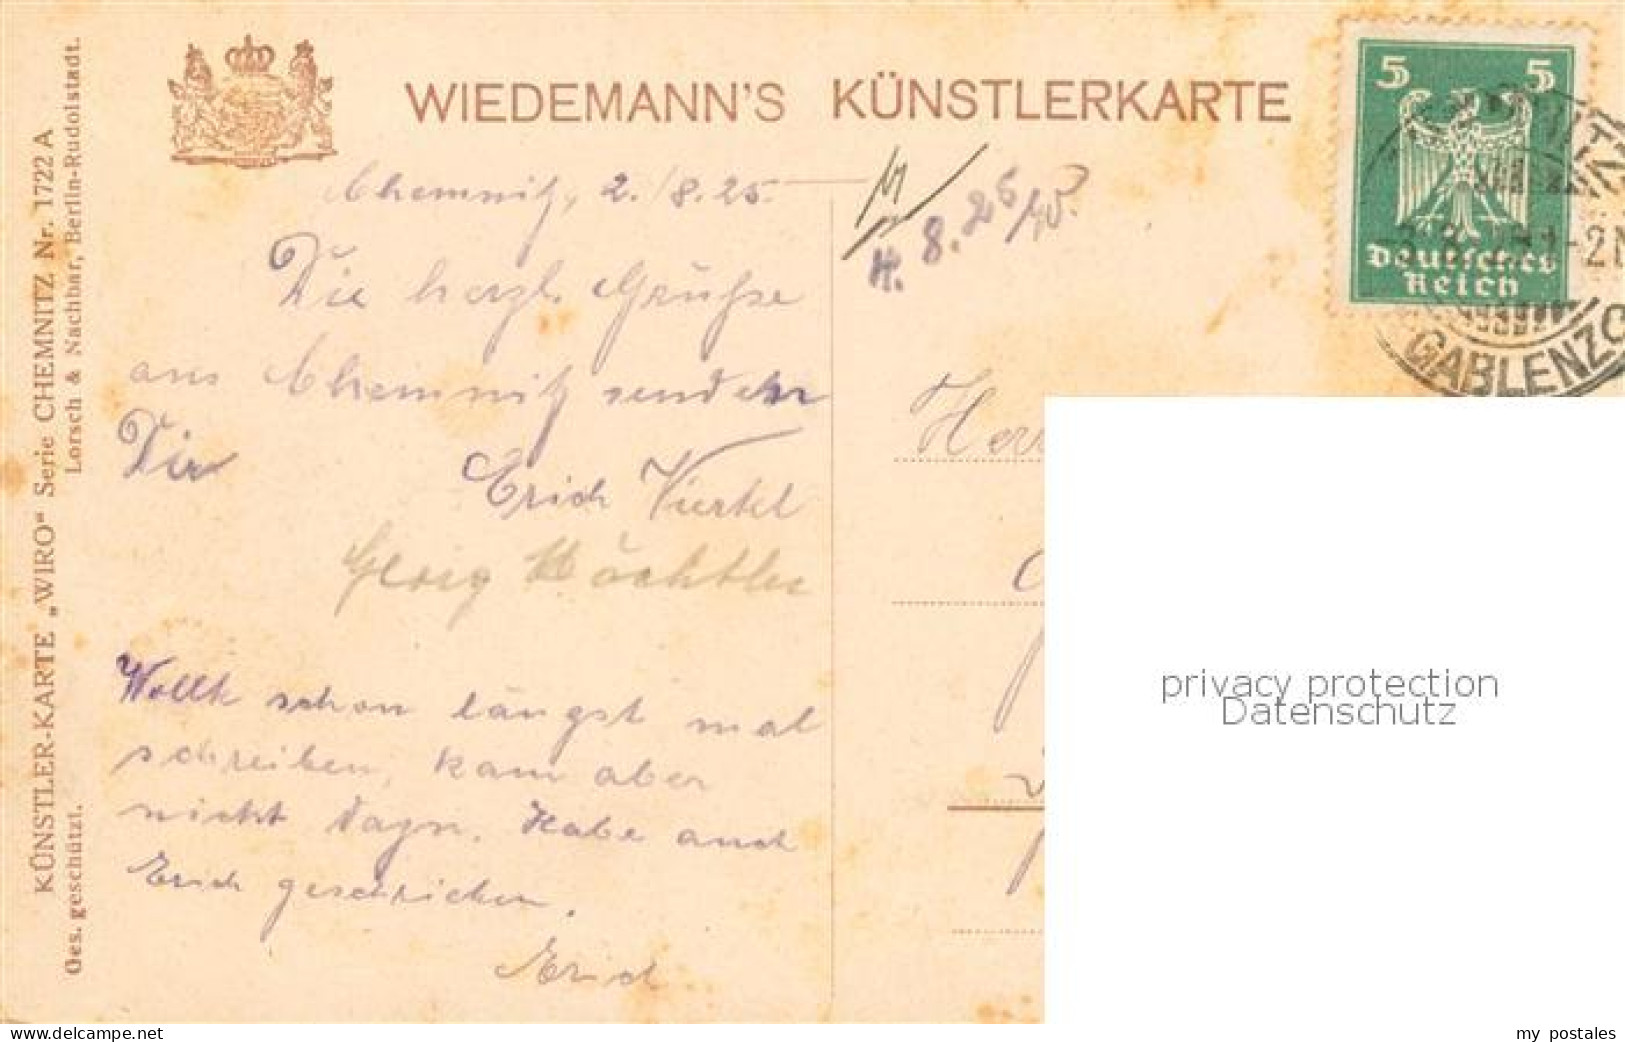 WIEDEMANN'S KÜNSTLERKARTE
KÜNSTLER-KARTE „WIRO“ Serie CHEMNITZ Nr. 1722 A
Ges. geschützt. Lorsch & Nachbar, Berlin-Rudolstadt.
5 5
Deutsches
Reich
GABLENZ
Chemnitz, 2./8.25.
Die herzl. Grüße
aus Chemnitz senden
Dir
Erich Viertel
Georg
Wollte schon längst mal
schreiben, kam aber
nicht dazu. Habe auch
Erich geschrieben.
Erich
8.25
Herr
privacy protection
Datenschutz
www.delcampe.net
my_postales